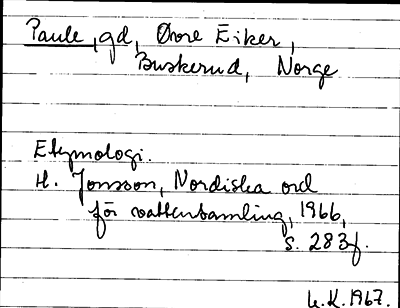 Paule, gd, Övre Eiker,
Buskerud, Norge
Etymologi.
H. Jonsson, Nordiska ord
för vattensamling, 1966,
s. 283f.
L.K. 1967.